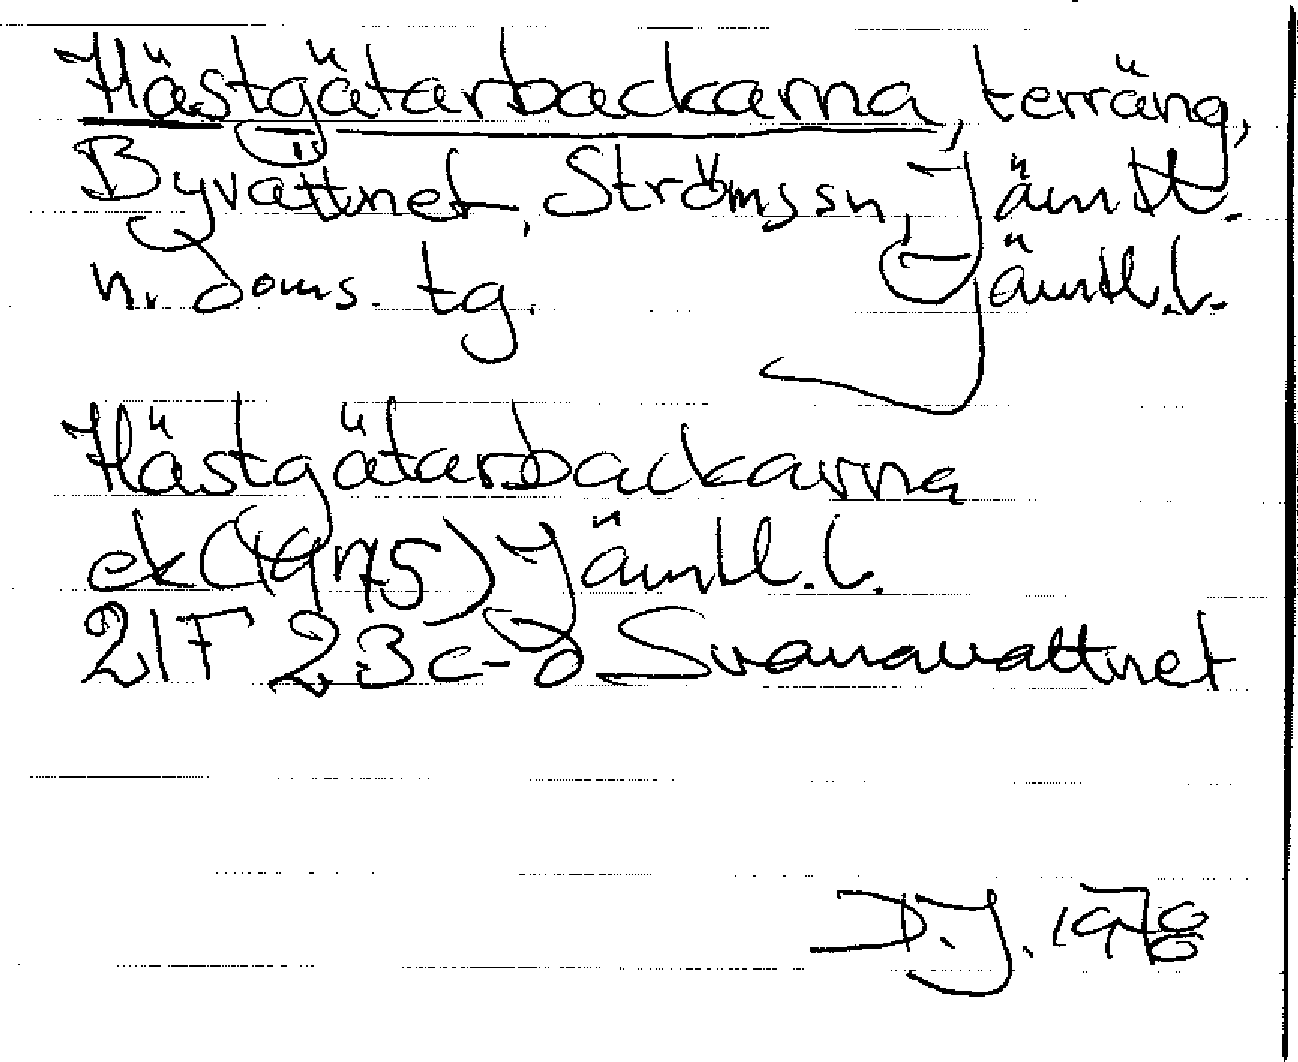 Hästgätarbackarna, terräng,
Byvattnet, Ströms sn, Jämtl.
n. doms. tg. Jämtl.l.
Hästgätarbackarna
ek (1975) Jämtl.l.
21F 23c-d Svanavattnet
D.J. 1978